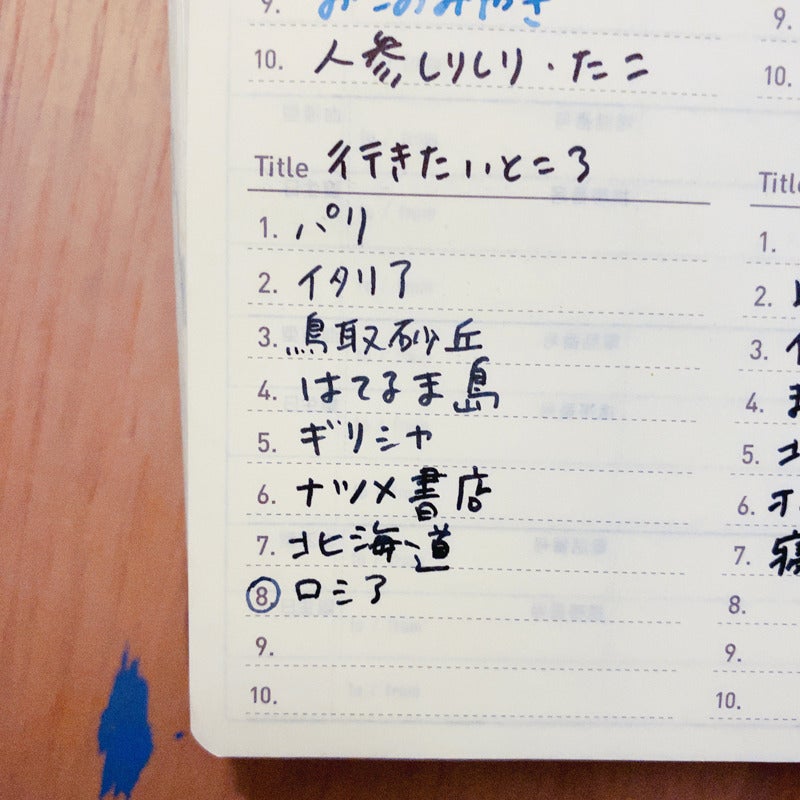 9. おこのみやき
10. 人参しりしり・たこ
Title 行きたいところ
1. パリ
2. イタリア
3. 鳥取砂丘
4. はてるま島
5. ギリシャ
6. ナツメ書店
7. 北海道
8. ロシア
9.
10.
9.
10.
Title
1.
2.
3.
4.
5.
6.
7.
8.
9.
10.